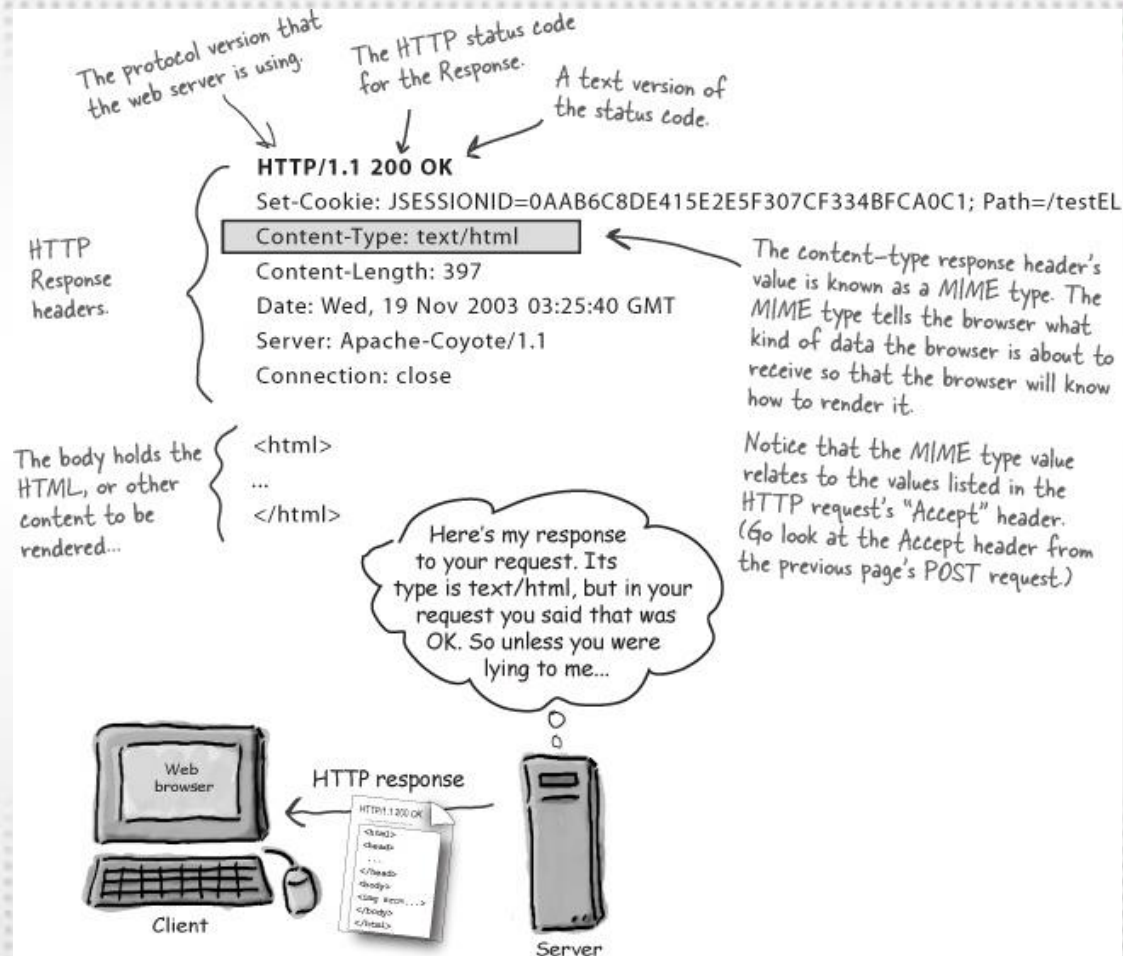 The protocol version that
the web server is using.
The HTTP status code
for the Response.
A text version of
the status code.
HTTP/1.1 200 OK
Set-Cookie: JSESSIONID=0AAB6C8DE415E2E5F307CF334BFCA0C1; Path=/testEL
Content-Type: text/html
Content-Length: 397
Date: Wed, 19 Nov 2003 03:25:40 GMT
Server: Apache-Coyote/1.1
Connection: close
HTTP
Response
headers.
The content-type response header's
value is known as a MIME type. The
MIME type tells the browser what
kind of data the browser is about to
receive so that the browser will know
how to render it.
Notice that the MIME type value
relates to the values listed in the
HTTP request's "Accept" header.
(Go look at the Accept header from
the previous page's POST request.)
The body holds the
HTML, or other
content to be
rendered...
<html>
...
</html>
Here's my response
to your request. Its
type is text/html, but in your
request you said that was
OK. So unless you were
lying to me...
Web
browser
HTTP response
HTTP/1.1 200 OK
<html>
<head>
...
</head>
<body>
<img src=...>
</body>
</html>
Client
Server